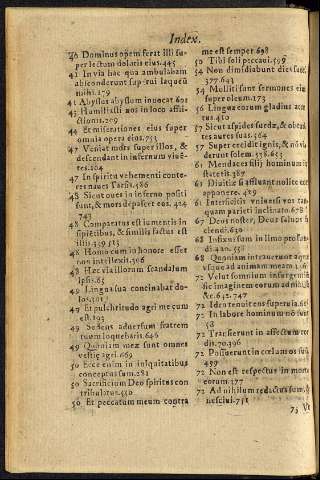 Index.
40 Dominus opem ferat illi su-
per lectum doloris eius.445
41 In via hac qua ambulabam
absconderunt superbi laqueū
mihi.179
41 Abyssus abyssum inuocat 601
43 Humiliasti nos in loco affli-
ctionis.209
44 Et miserationes eius super
omnia opera eius.753
47 Veniat mors super illos, &
descendant in infernum viuē-
tes.104
47 In spiritu vehementi conte-
res naues Tarsis.186
48 Sicut oues in inferno positi
sunt, & mors depascet eos. 424
743
48 Comparatus est iumentis in
sipiētibus, & similis factus est
illis.339 515
48 Homo cum in honore esset
non intellexit.306
48 Hæc via illorum scandalum
ipsis.65
49 Lingua tua concinabat do-
los.
49 Et pulchritudo agri mecum
est.193
49 Sedens aduersum fratrem
tuum loquebaris.646
49 Quoniam mez sunt omnes
agri.669
50 Ecce enim in iniquitatibus
conceptus sum.281
50 Sacrificium Deo spiritus con
tribulatus.550
50 Et peccatum meum contra
me est semper 698
50 Tibi soli peccaui.599
54 Non dimidiabunt dies suos.
377.643
54 Molliti sunt sermones eius
super oleum.173
56 Lingua eorum gladius acu-
tus 410
57 Sicut aspides surdæ, & obturā
tes aures suas.564
57 Super cecidit ignis, & nō vi-
derunt solem.
61 Mendaces filij hominum in
stateris.387
61 Diuitiæ si affluant nolite cor
apponere.
61 Interficitis vniuersi vos tan-
quam parieti inclinato.678
67 Deus noster, Deus saluos fa
ciendi.630
68 Infixus sum in limo profun-
di.
68 Quoniam intrauerunt aquæ
vsque ad animam meam
72 Velut somnium insurgentiū
sic imaginem eorum ad nihil.
&c.642.747
72 Ideo tenuit eos superbia.
72 In labore hominum nō sunt
58
72 Transierunt in affectum cor
dis.70.396
72 Posuerunt in cœlum os suū
72 Non est respectus in morte
eorum.377
72 Ad nihilum redactus sum, &
nesciui.751
73